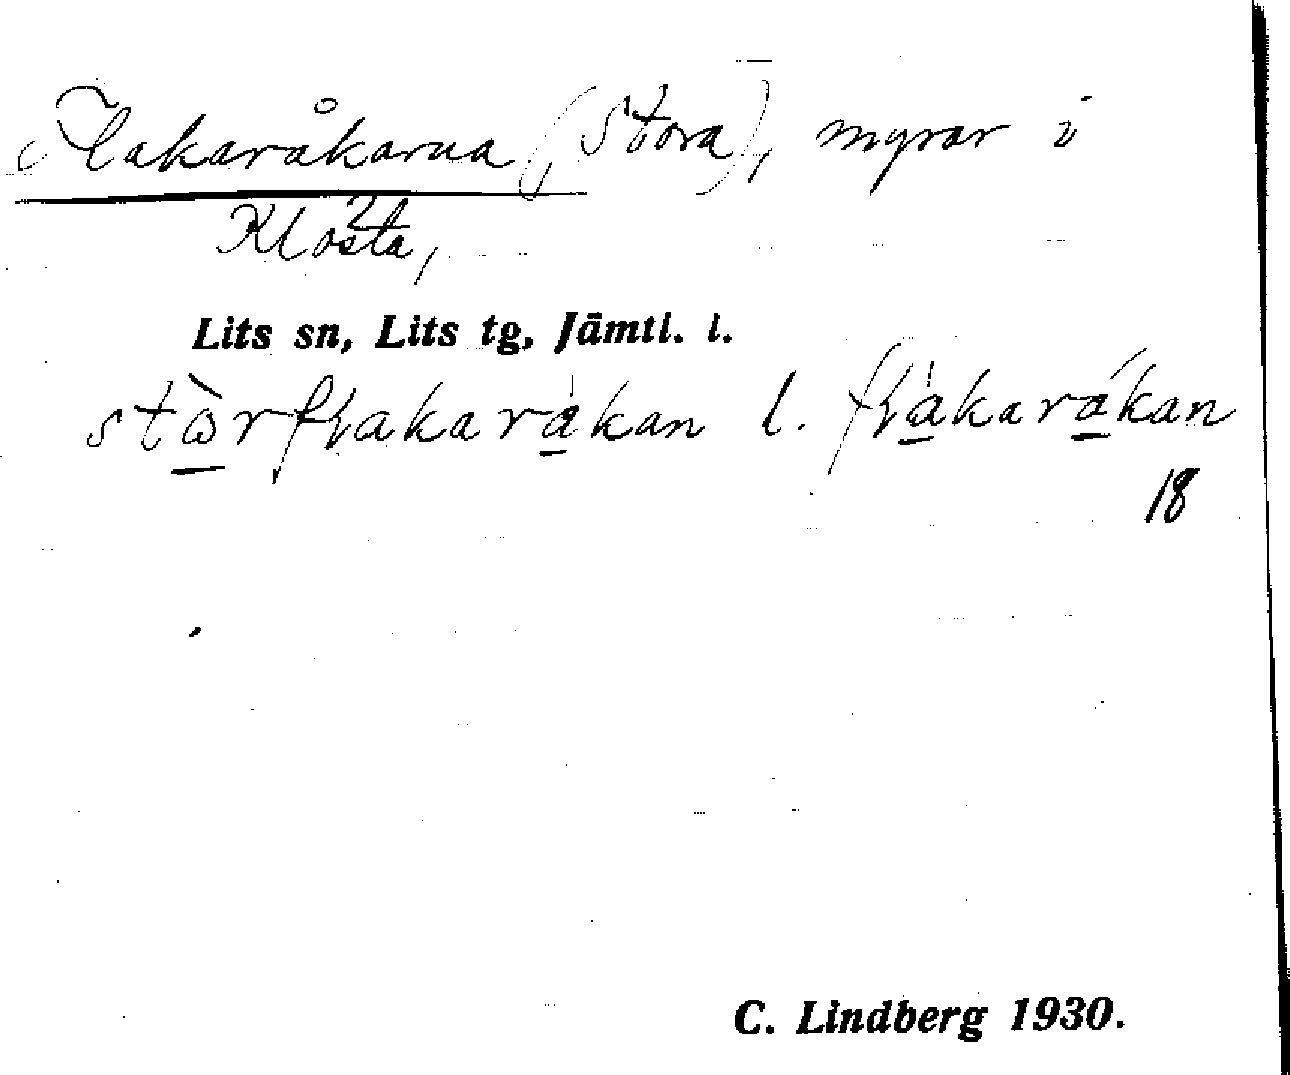 Flakaråkarna (, Stora), myrar i
Klösta,
Lits sn, Lits tg, Jämtl. l.
stɷ̀rfɽakaråkan l. fɽàkaråkan
18
C. Lindberg 1930.